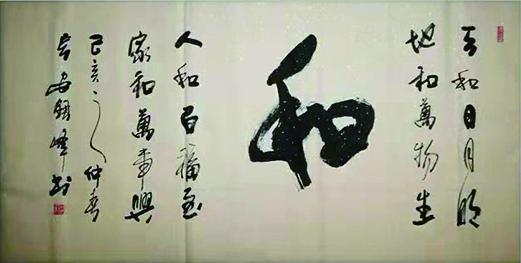 天和日月明
地和萬物生
和
人和百福至
家和萬事興
己亥之仲春
安峰書